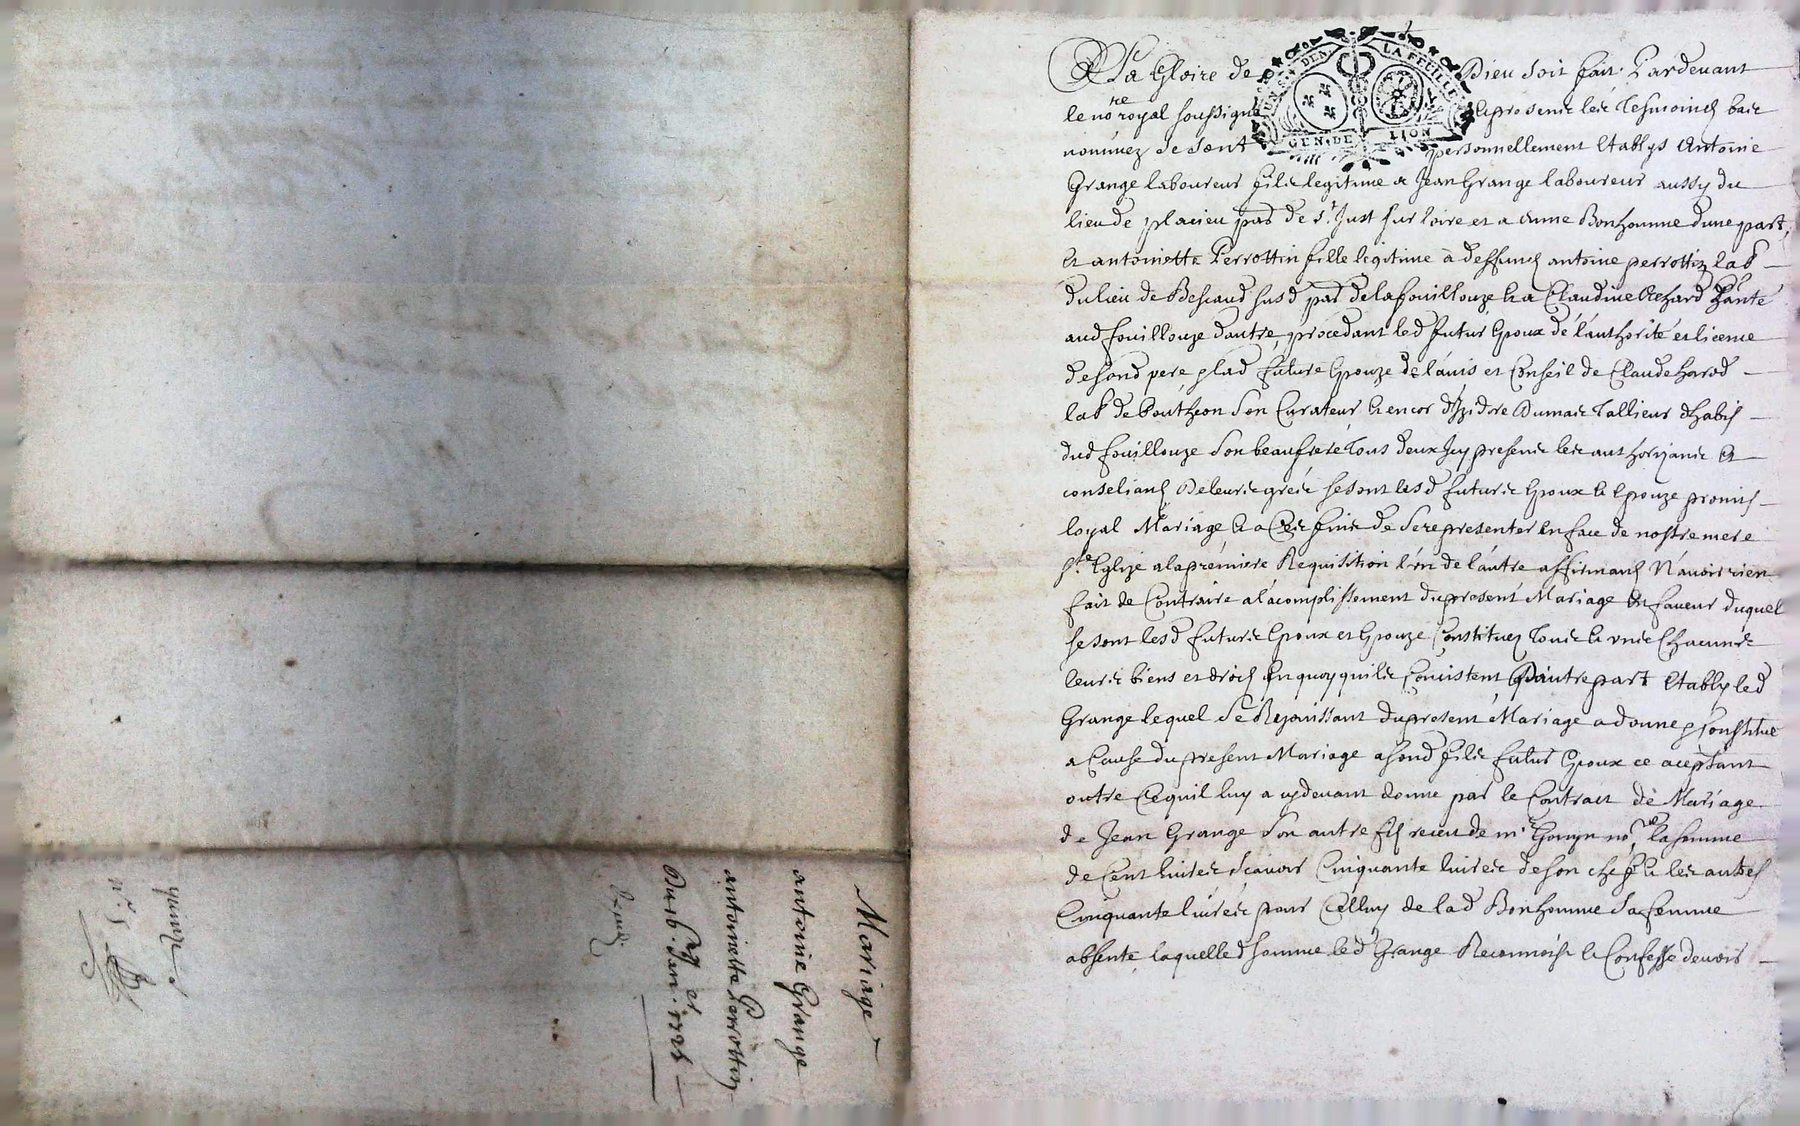 Mariage
antoine Grange
et
antoinette Perrottin
Du 16 1725
A La Gloire de Dieu soit fait Pardevant
le no.re royal soussigné et presents les tesmoings bas
nommez se sont personnellement etablys Antoine
Grange laboureur fils legitime a Jean Grange laboureur aussy du
lieu de placieu par. de s.t Just sur loire et a Anne Bonhomme dune part,
Et antoinette Perrottin fille legitime à deffunct antoine perrottin lab.r
du lieu de susd par. de lafouillouze et a Claudine
aud fouillouze dautre, procedant led futur Epoux de l'authorité et licence
desond pere et lad future Epouze de l'avis et Conseil de Claude harod
lab.r de bouthéon son Curateur et encor d'Izidore Dumas Tallieur dhabits
dud fouillouze son beaufrere tous deux Icy presents les authorizants et
conseliants De leurs grés se sont lesd futurs Epoux et Epouze promis
loyal Mariage et a Ces fins de se representer en face de nostre mere
s.te Eglize a la premiere Requisition l'un de l'autre affirmants N'avoir rien
fait de Contraire a l'acomplissement du present Mariage En faveur duquel
se sont lesd futurs Epoux et Epouze Constituez tous et uns Chacuns
leurs biens et droits En quoy quils Concistent D'autre part Etably led
Grange lequel se Rejouissant du present Mariage a donne et Constitué
a Cause du present Mariage asond fils futur Epoux ce aceptant
outre Cequil luy a cydevant donne par le Contract de Mariage
de Jean Grange son autre fils receu de m.e no.re la somme
de Cent livres scavoir Cinquante livres de son chef et les autres
Cinquante livres pour Celluy de lad Bonhomme sa femme
absente, laquelle d somme led Grange Reconnoist et Confesse devoir
GEN. DE LION
LA FEUILLE